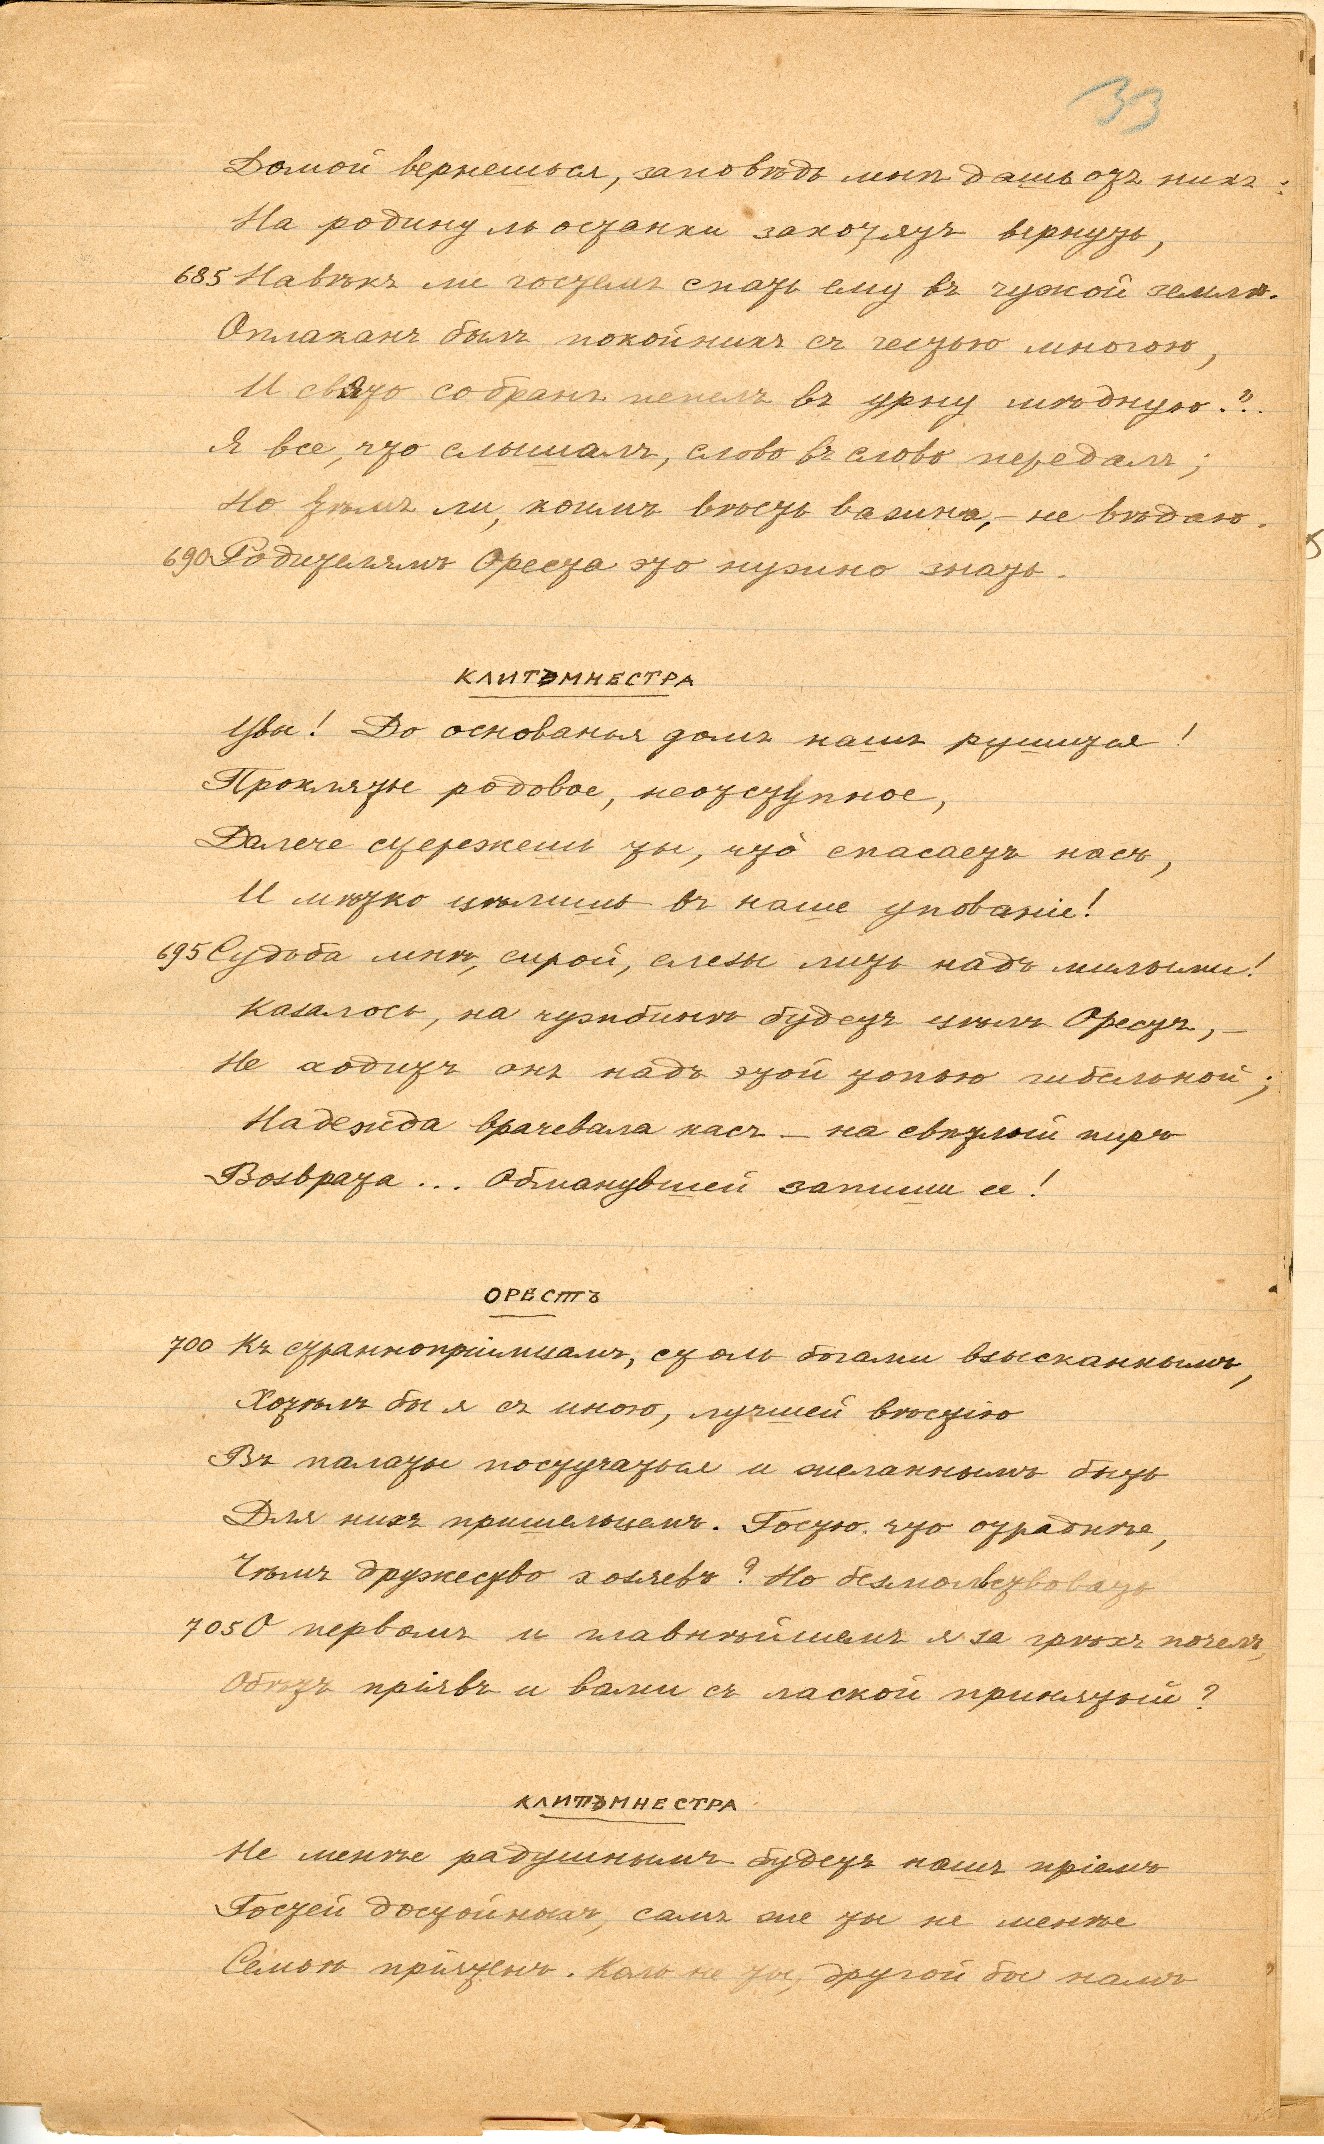 33
Домой вернешься, заповѣдь мнѣ дашь отъ нихъ:
На родину ль останки захотятъ вернуть,
685 Навѣкъ ли гостемъ спать ему въ чужой землѣ.
Оплаканъ былъ покойникъ съ честью многою,
И свято собранъ пепелъ въ урну мѣдную."..
Я все, что слышалъ, слово въ слово передалъ;
Но тѣмъ ли, коимъ вѣсть важна,– не вѣдаю.
690 Родителямъ Ореста это нужно знать.
КЛИТЭМНЕСТРА
Увы! До основанья домъ нашъ рушится!
Проклятье родовое, неотступное,
Далече стережешь ты, что̀ спасаетъ насъ,
И мѣтко цѣлишь въ наше упованіе!
695 Судьба мнѣ, сирой, слезы лить надъ милыми!
Казалось, на чужбинѣ будетъ цѣлъ Орестъ,–
Не ходитъ онъ надъ этой топью гибельной;
Надежда врачевала насъ – на свѣтлый пиръ
Возврата... Обманувшей запиши ее!
ОРЕСТЪ
700 Къ страннопріимцамъ, столь богами взысканнымъ,
Хотѣлъ бы я съ иною, лучшей вѣстію
Въ палаты постучаться и желаннымъ быть
Для нихъ пришельцемъ. Гостю что отраднѣе,
Чѣмъ дружество хозяевъ? Но безмолвствовать
705 О первомъ и главнѣйшемъ я за грѣхъ почелъ,
Обѣтъ пріявъ и вами съ лаской принятый?
КЛИТЭМНЕСТРА
Не менѣе радушнымъ будетъ нашъ пріемъ
Гостей достойныхъ, самъ же ты не менѣе
Семьѣ пріятенъ. Коль не ты, другой бы намъ